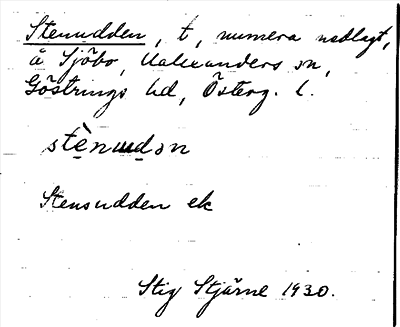 Stenudden, t, numera nedlagt,
å Sjöbo, Ualexanders sn,
Göstrings hd, Österg. l.
stènudən
Stensudden ek
Stig Stjärne 1930.